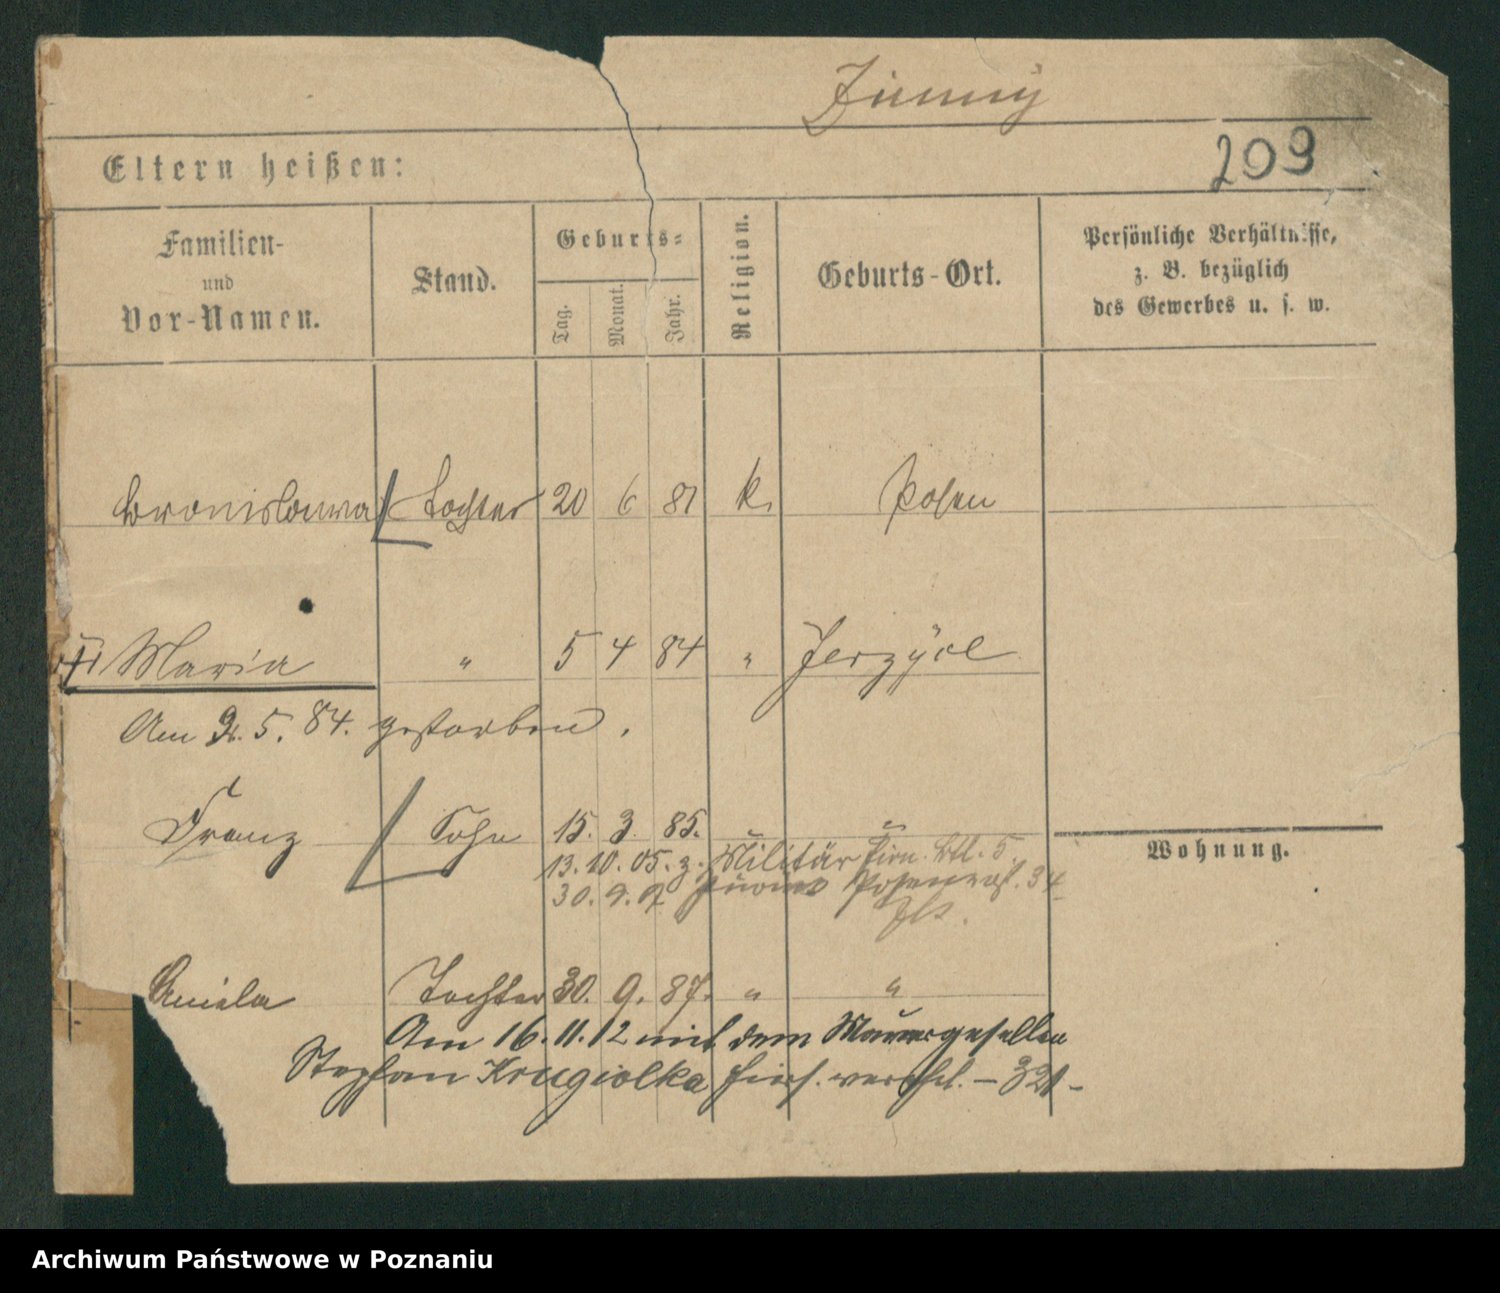 Zimny
209
Eltern heißen:
Familien-
und
Vor-Namen.
Stand.
Geburts-
Tag.
Monat.
Jahr.
Religion.
Geburts-Ort.
Persönliche Verhältnisse,
z. B. bezüglich
des Gewerbes u. s. w.
Bronislawa Tochter 20 6 81 k. Posen
Maria " 5 4 84 " Jerzyce
Am 9. 5. 84. gestorben.
Franz Sohn 15. 3. 85. " "
13. 10. 05. z. Militär Pion. Btl. 5.
30. 9. 07 Posenerst. 34
Wohnung.
Aniela Tochter 30. 9. 87. " "
Am 16. 11. 12 mit dem Maurergesellen
Stephan Krugiolka hier verehel. – 321 –
Archiwum Państwowe w Poznaniu